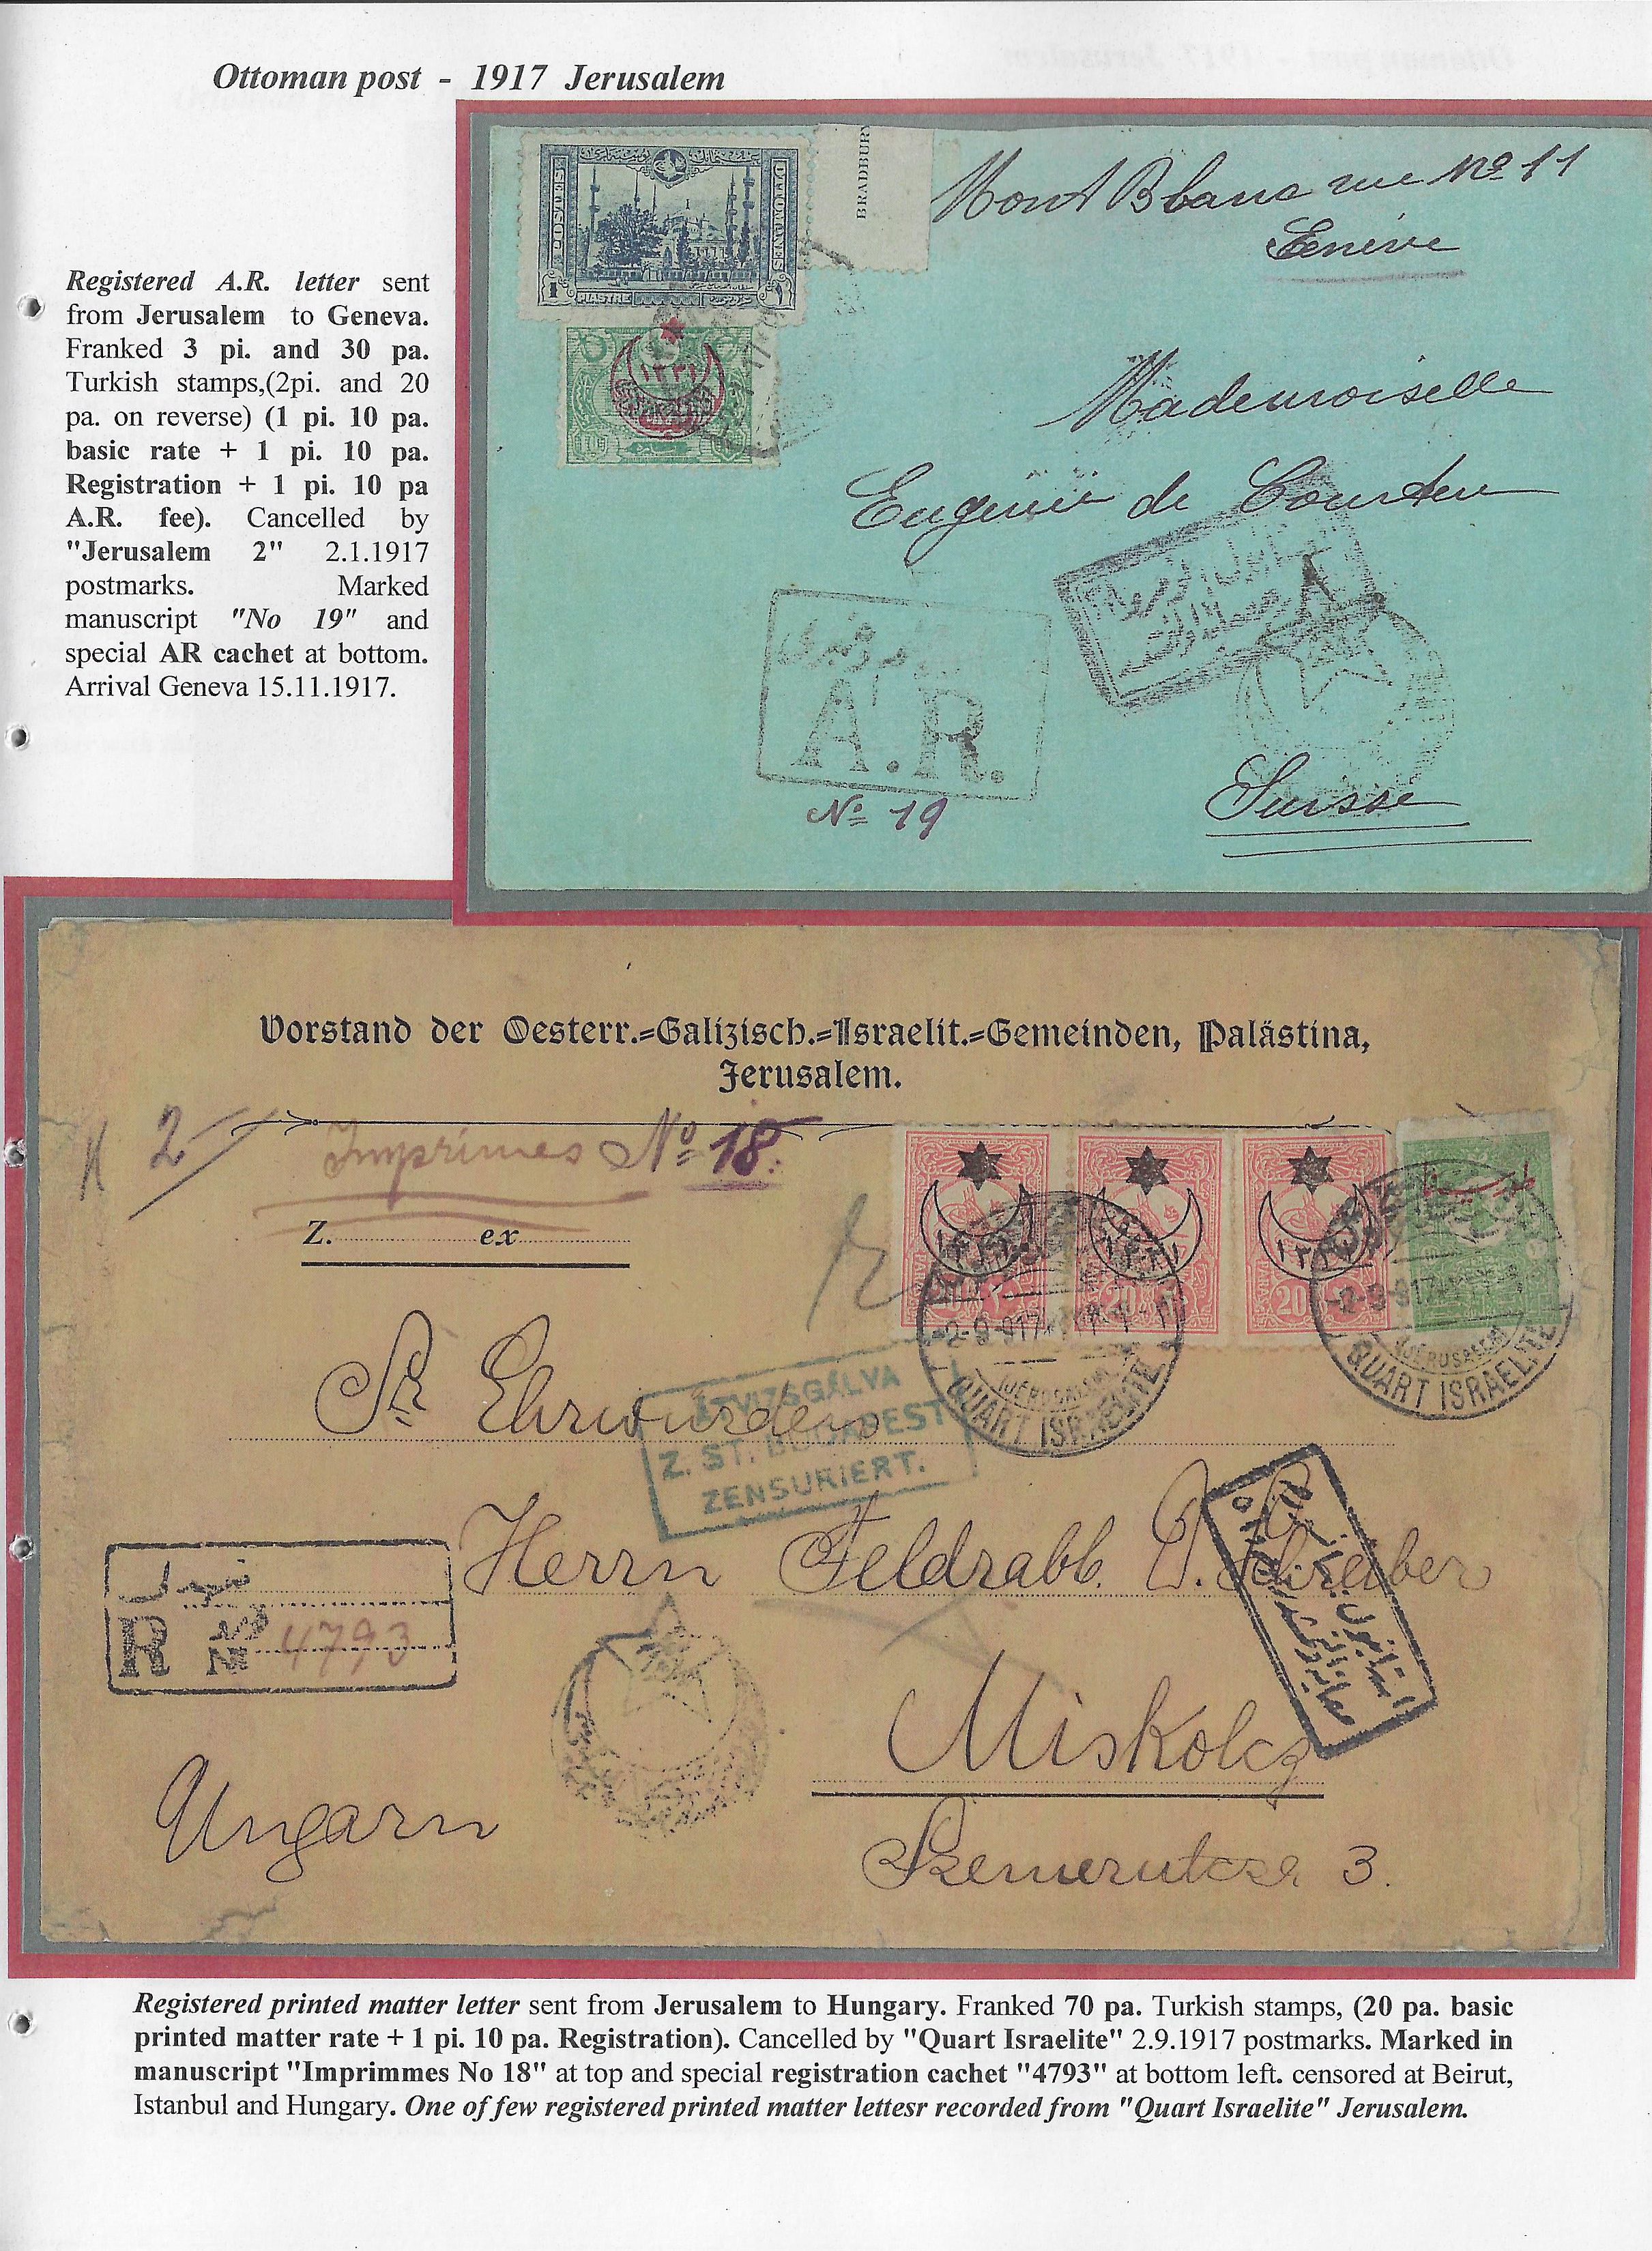 Ottoman post - 1917 Jerusalem
Registered A.R. letter sent
from Jerusalem to Geneva.
Franked 3 pi. and 30 pa.
Turkish stamps,(2pi. and 20
pa. on reverse) (1 pi. 10 pa.
basic rate + 1 pi. 10 pa.
Registration + 1 pi. 10 pa
A.R. fee). Cancelled by
"Jerusalem 2" 2.1.1917
postmarks. Marked
manuscript "No 19" and
special AR cachet at bottom.
Arrival Geneva 15.11.1917.
POSTES OTTOMANES
1 PIASTRE
BRADBURY
10
١٣٣١
Mont Blanc rue No 11
Genève
Mademoiselle
Eugenie de Courten
A.R.
No 19
Suisse
Vorstand der Oesterr.=Galizisch.=Israelit.=Gemeinden, Palästina,
Jerusalem.
2
Imprimes No 18.
Z. ex
20 20 20
١٣٣١ ١٣٣١ ١٣٣١
-2-9-917
JÉRUSALEM
QUART ISRAELITE
-2-9-917
JÉRUSALEM
QUART ISRAELITE
Sr Ehrwürden
ÁTVIZSGÁLVA
Z. ST. BUDAPEST
ZENSURIERT.
Herrn Feldrabb. D. Schreiber
R No 4793
Miskolcz
Ungarn
3.
Registered printed matter letter sent from Jerusalem to Hungary. Franked 70 pa. Turkish stamps, (20 pa. basic
printed matter rate + 1 pi. 10 pa. Registration). Cancelled by "Quart Israelite" 2.9.1917 postmarks. Marked in
manuscript "Imprimmes No 18" at top and special registration cachet "4793" at bottom left. censored at Beirut,
Istanbul and Hungary. One of few registered printed matter lettesr recorded from "Quart Israelite" Jerusalem.